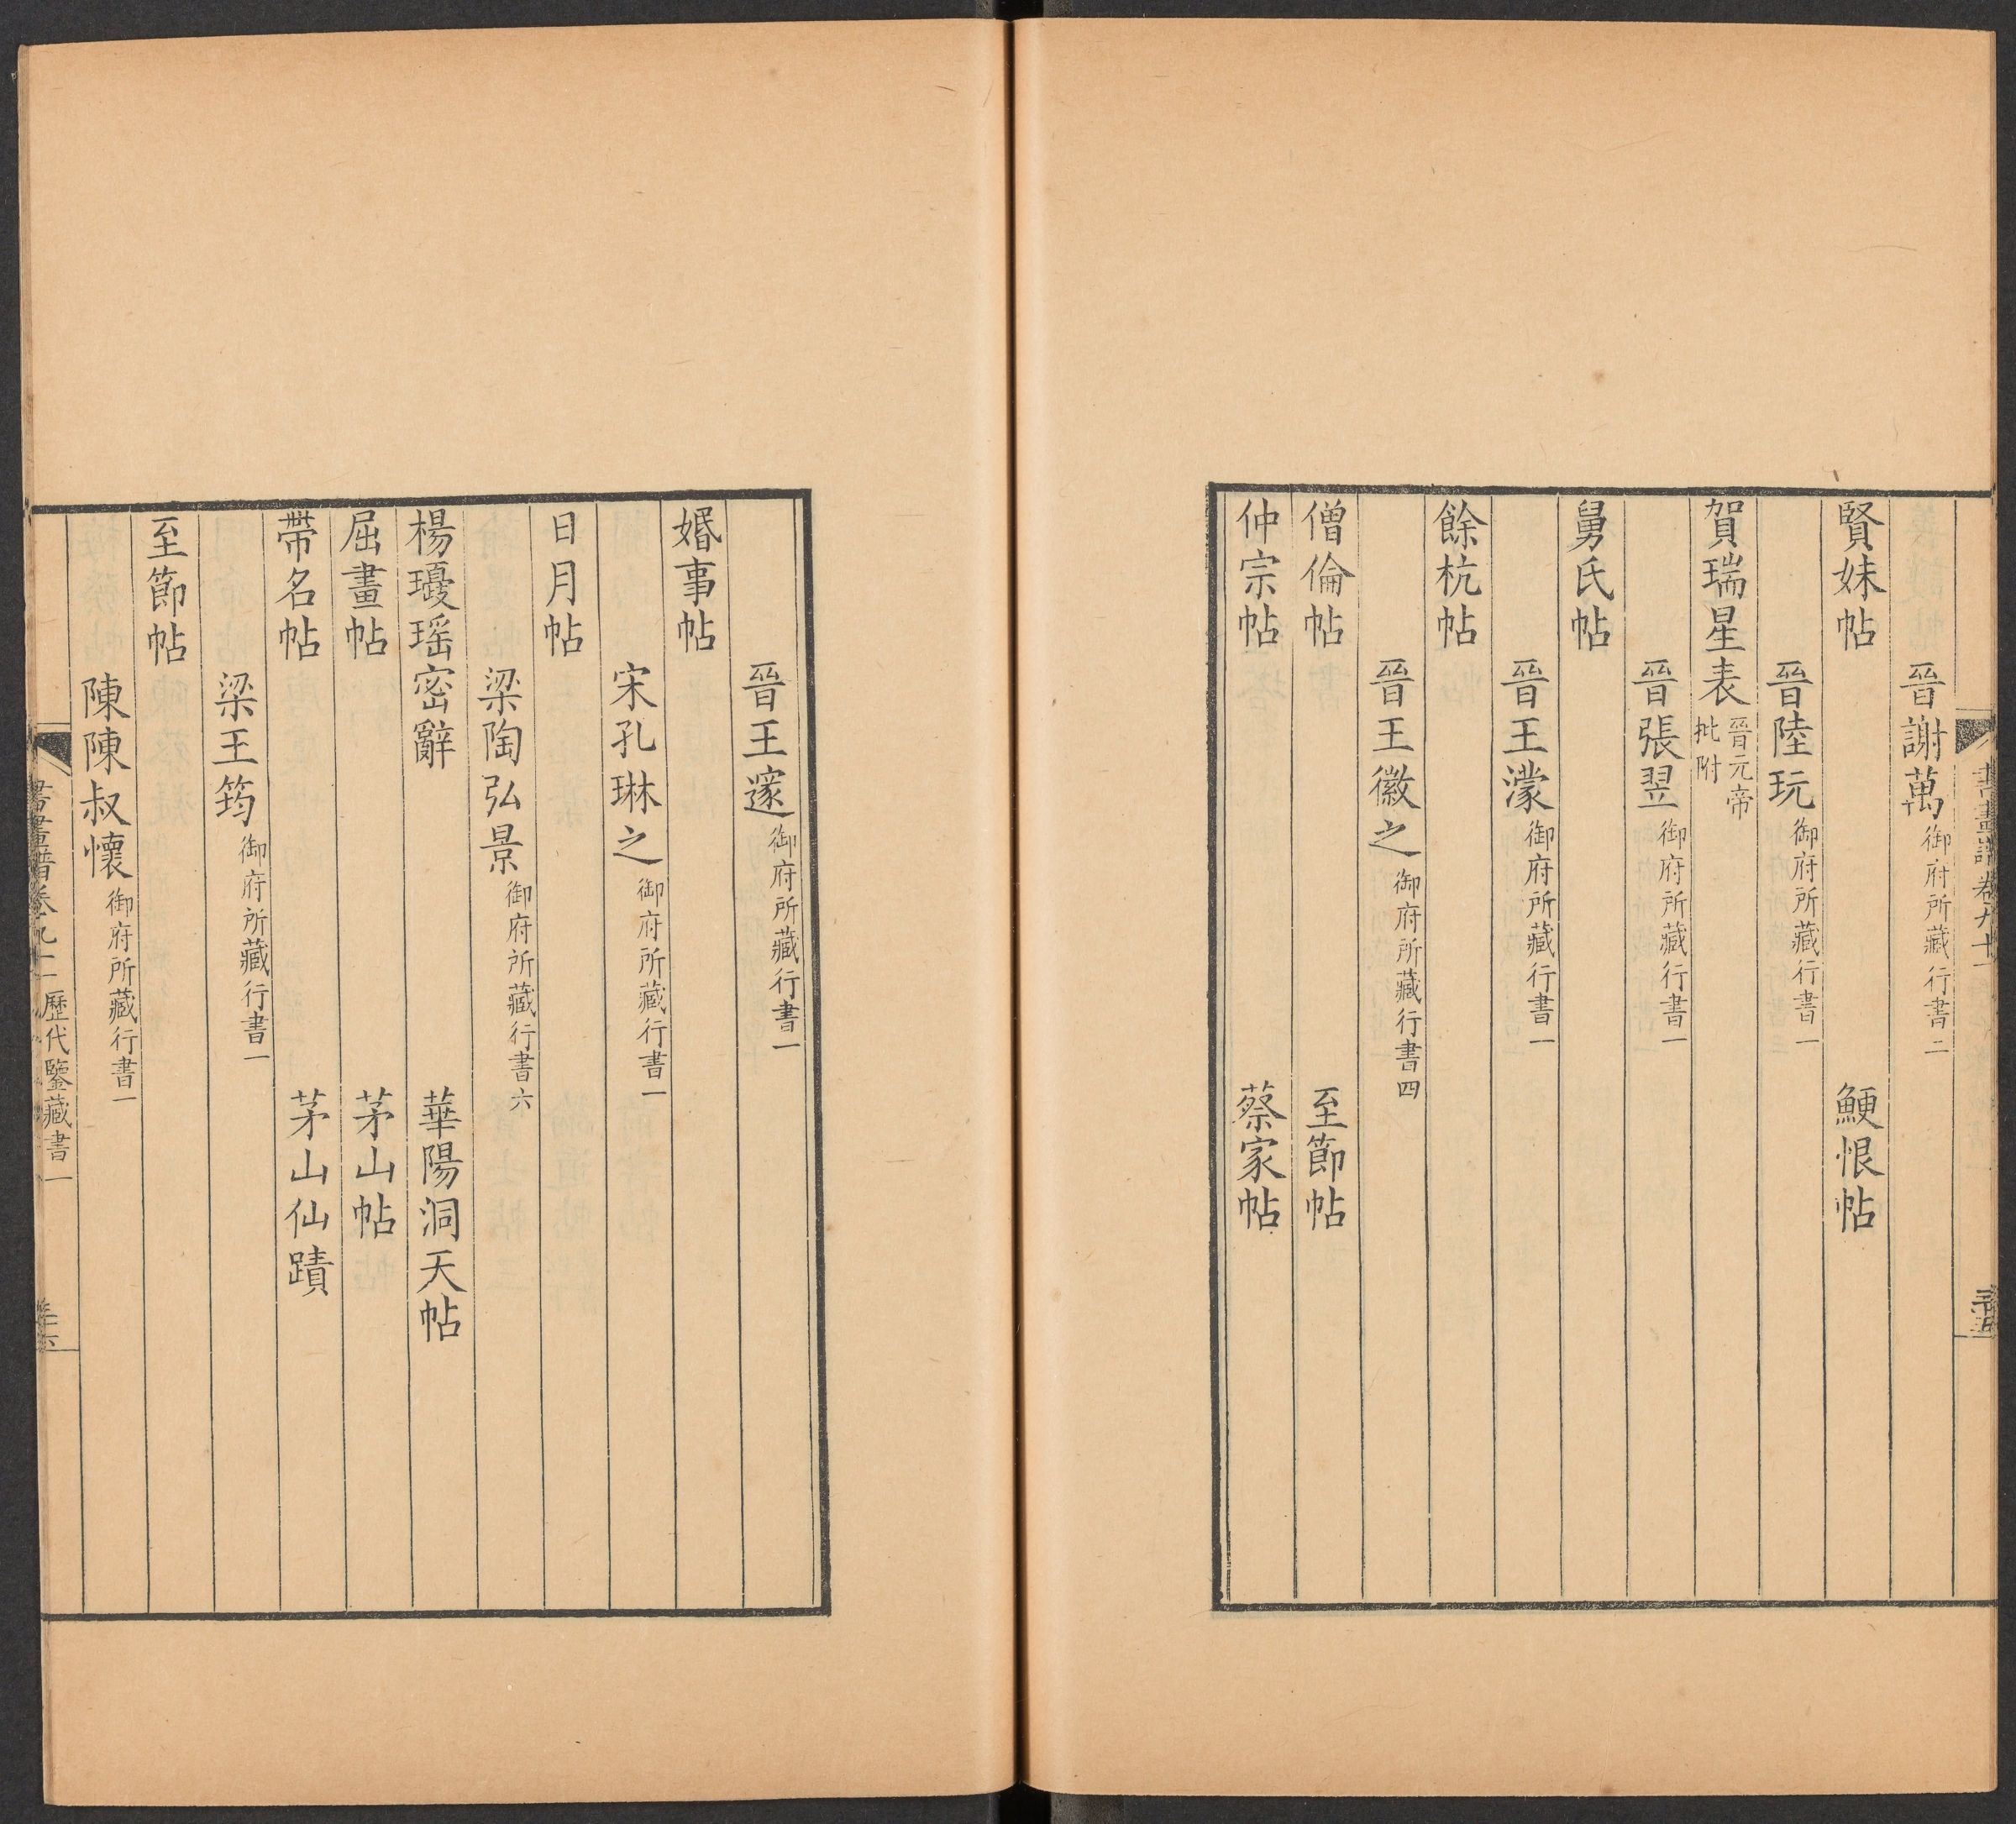 晉謝萬御府所藏行書二
賢妹帖 鯁恨帖
晉陸玩御府所藏行書一
賀瑞星表晉元帝批附
晉張翌御府所藏行書一
舅氏帖
晉王濛御府所藏行書一
餘杭帖
晉王徽之御府所藏行書四
僧倫帖 至節帖
仲宗帖 蔡家帖
晉王邃御府所藏行書一
婚事帖
宋孔琳之御府所藏行書一
日月帖
梁陶弘景御府所藏行書六
楊瓊瑶密辭 華陽洞天帖
屈畫帖 茅山帖
帶名帖 茅山仙蹟
梁王筠御府所藏行書一
至節帖
陳陳叔懷御府所藏行書一
書畫譜卷九十一 歷代鑒藏書一